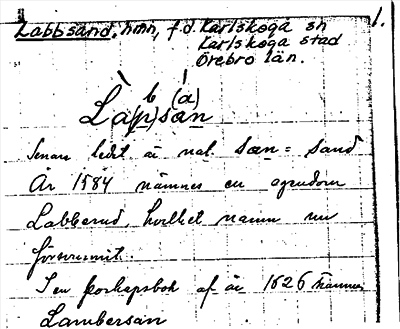 1.
Labbsand, hmn, f.d. Karlskoga sn
Karlskoga stad
Örebro län.
b (a)
Là(p)sæn
Senare ledet är nat. sæn = sand
År 1584 nämnes en
Labberud, hvilket namn nu
försvunnit.
I en jordeboksbok af år 1626 nämnes
Lambersan